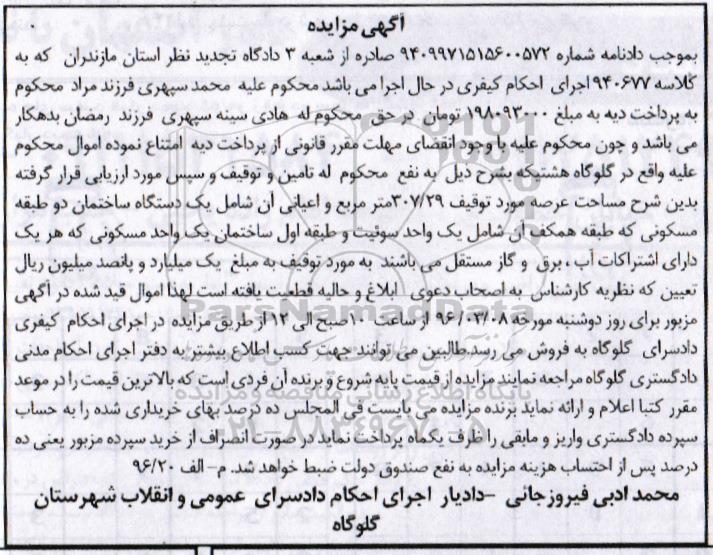 آگهی مزایده
بموجب دادنامه شماره ۹۴۰۹۹۷۱۵۱۵۶۰۰۵۷۲ صادره از شعبه ۳ دادگاه تجدید نظر استان مازندران که به
کلاسه ۹۴۰۶۷۷ اجرای احکام کیفری در حال اجرا می باشد محکوم علیه محمد سپهری فرزند مراد محکوم
به پرداخت دیه به مبلغ ۱۹۸۰۹۳۰۰۰ تومان در حق محکوم له هادی سینه سپهری فرزند رمضان بدهکار
می باشد و چون محکوم علیه با وجود انقضای مهلت مقرر قانونی از پرداخت دیه امتناع نموده اموال محکوم
علیه واقع در گلوگاه هشتیکه بشرح ذیل به نفع محکوم له تامین و توقیف و سپس مورد ارزیابی قرار گرفته
بدین شرح مساحت عرصه مورد توقیف ۳۰۷/۲۹متر مربع و اعیانی آن شامل یک دستگاه ساختمان دو طبقه
مسکونی که طبقه همکف آن شامل یک واحد سوئیت و طبقه اول ساختمان یک واحد مسکونی که هر یک
دارای اشتراکات آب ، برق و گاز مستقل می باشند به مورد توقیف به مبلغ یک میلیارد و پانصد میلیون ریال
تعیین که نظریه کارشناس به اصحاب دعوی ابلاغ و حالیه قطعیت یافته است لهذا اموال قید شده در آگهی
مزبور برای روز دوشنبه مورخه ۹۶/۰۳/۰۸ از ساعت ۱۰ صبح الی ۱۲ از طریق مزایده در اجرای احکام کیفری
دادسرای گلوگاه به فروش می رسد طالبین می توانند جهت کسب اطلاع بیشتر به دفتر اجرای احکام مدنی
دادگستری گلوگاه مراجعه نمایند مزایده از قیمت پایه شروع و برنده آن فردی است که بالاترین قیمت را در موعد
مقرر کتبا اعلام و ارائه نماید برنده مزایده می بایست فی المجلس ده درصد بهای خریداری شده را به حساب
سپرده دادگستری واریز و مابقی را ظرف یکماه پرداخت نماید در صورت انصراف از خرید سپرده مزبور یعنی ده
درصد پس از احتساب هزینه مزایده به نفع صندوق دولت ضبط خواهد شد. م – الف ۹۶/۲۰
محمد ادبی فیروزجائی – دادیار اجرای احکام دادسرای عمومی و انقلاب شهرستان
گلوگاه
ParsNamadData
پایگاه اطلاع رسانی مناقصه و مزایده
۰۲۱-۸۸۳۴۹۶۷۰-۵